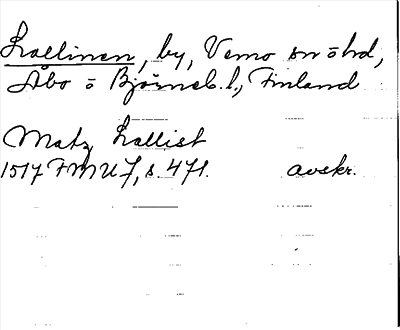 Lallinen, by, Vemo sn o hd,
Åbo o Björneb. l., Finland
Matz Lallist
1517 FMU 7, s. 471. avskr.